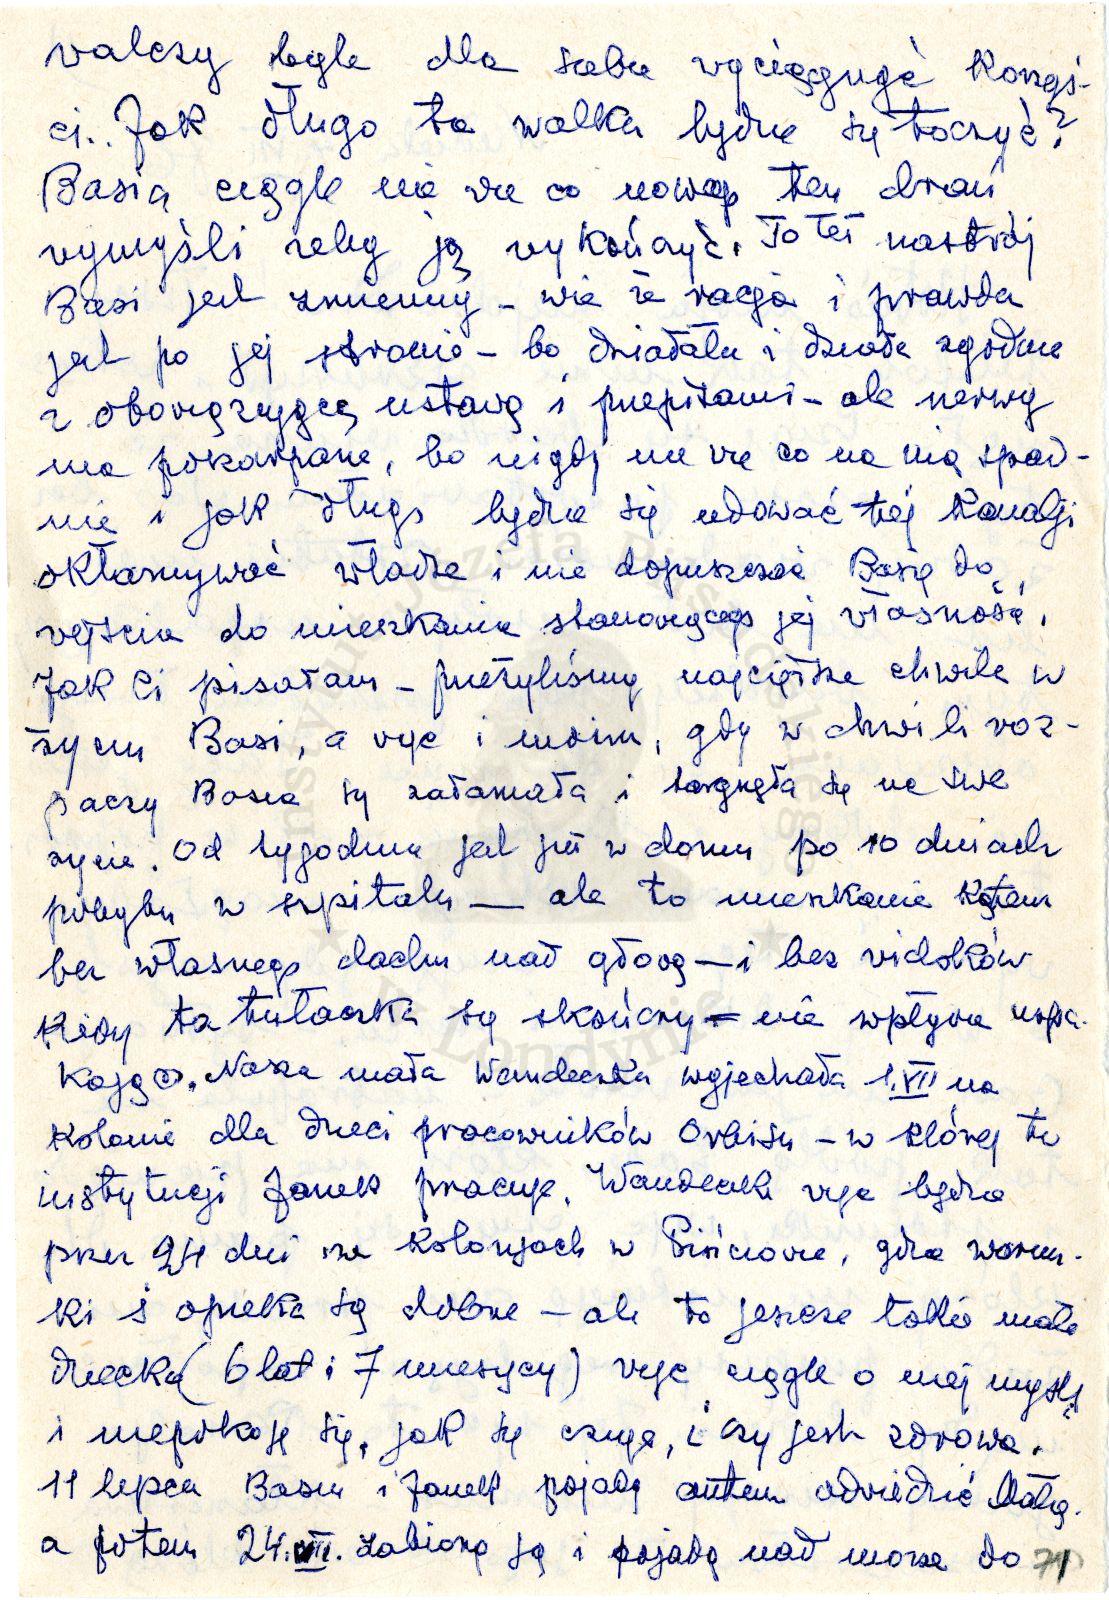 walczy byle dla siebie wyciągnąć korzyś-
ci. Jak długo ta walka będzie się toczyć?
Basia ciągle nie wie co nowego ten drań
wymyśli żeby ją wykończyć. To też nastrój
Basi jest zmienny – wie że racja i prawda
jest po jej stronie – bo działała i działa zgodnie
z obowiązującą ustawą i przepisami – ale nerwy
ma pokarpane, bo nigdy nie wie co na nią spad-
nie i jak długo będzie się udawać tej kanalji
okłamywać władze i nie dopuszczać Basię do
wejścia do mieszkania stanowiącego jej własność.
Jak Ci pisałam – przeżyliśmy najcięższe chwile w
życiu Basi, a więc i moim, gdy w chwili roz-
paczy Basia się załamała i targnęła się na swe
życie. Od tygodnia jest już w domu po 10 dniach
pobytu w szpitalu — ale to mieszkanie kątem
bez własnego dachu nad głową — i bez widoków
kiedy ta tułaczka się skończy – nie wpływa uspa-
kająco. Nasza mała Wandeczka wyjechała 1.VII na
kolonie dla dzieci pracowników Orbisu – w której to
instytucji Janek pracuje. Wandeczka więc będzie
przez 24 dni na kolonjach w , gdzie warun-
ki i opieka są dobre – ale to jeszcze takie małe
dziecko (6 lat i 7 miesięcy) więc ciągle o niej myślę
i niepokoję się, jak się czuje, i czy jest zdrowa.
11 lipca Basia i Janek pojadą autem odwiedzić Małą.
a potem 24.VII. zabiorą ją i pojadą nad morze do
71
Instytut Józefa Piłsudskiego
w Londynie